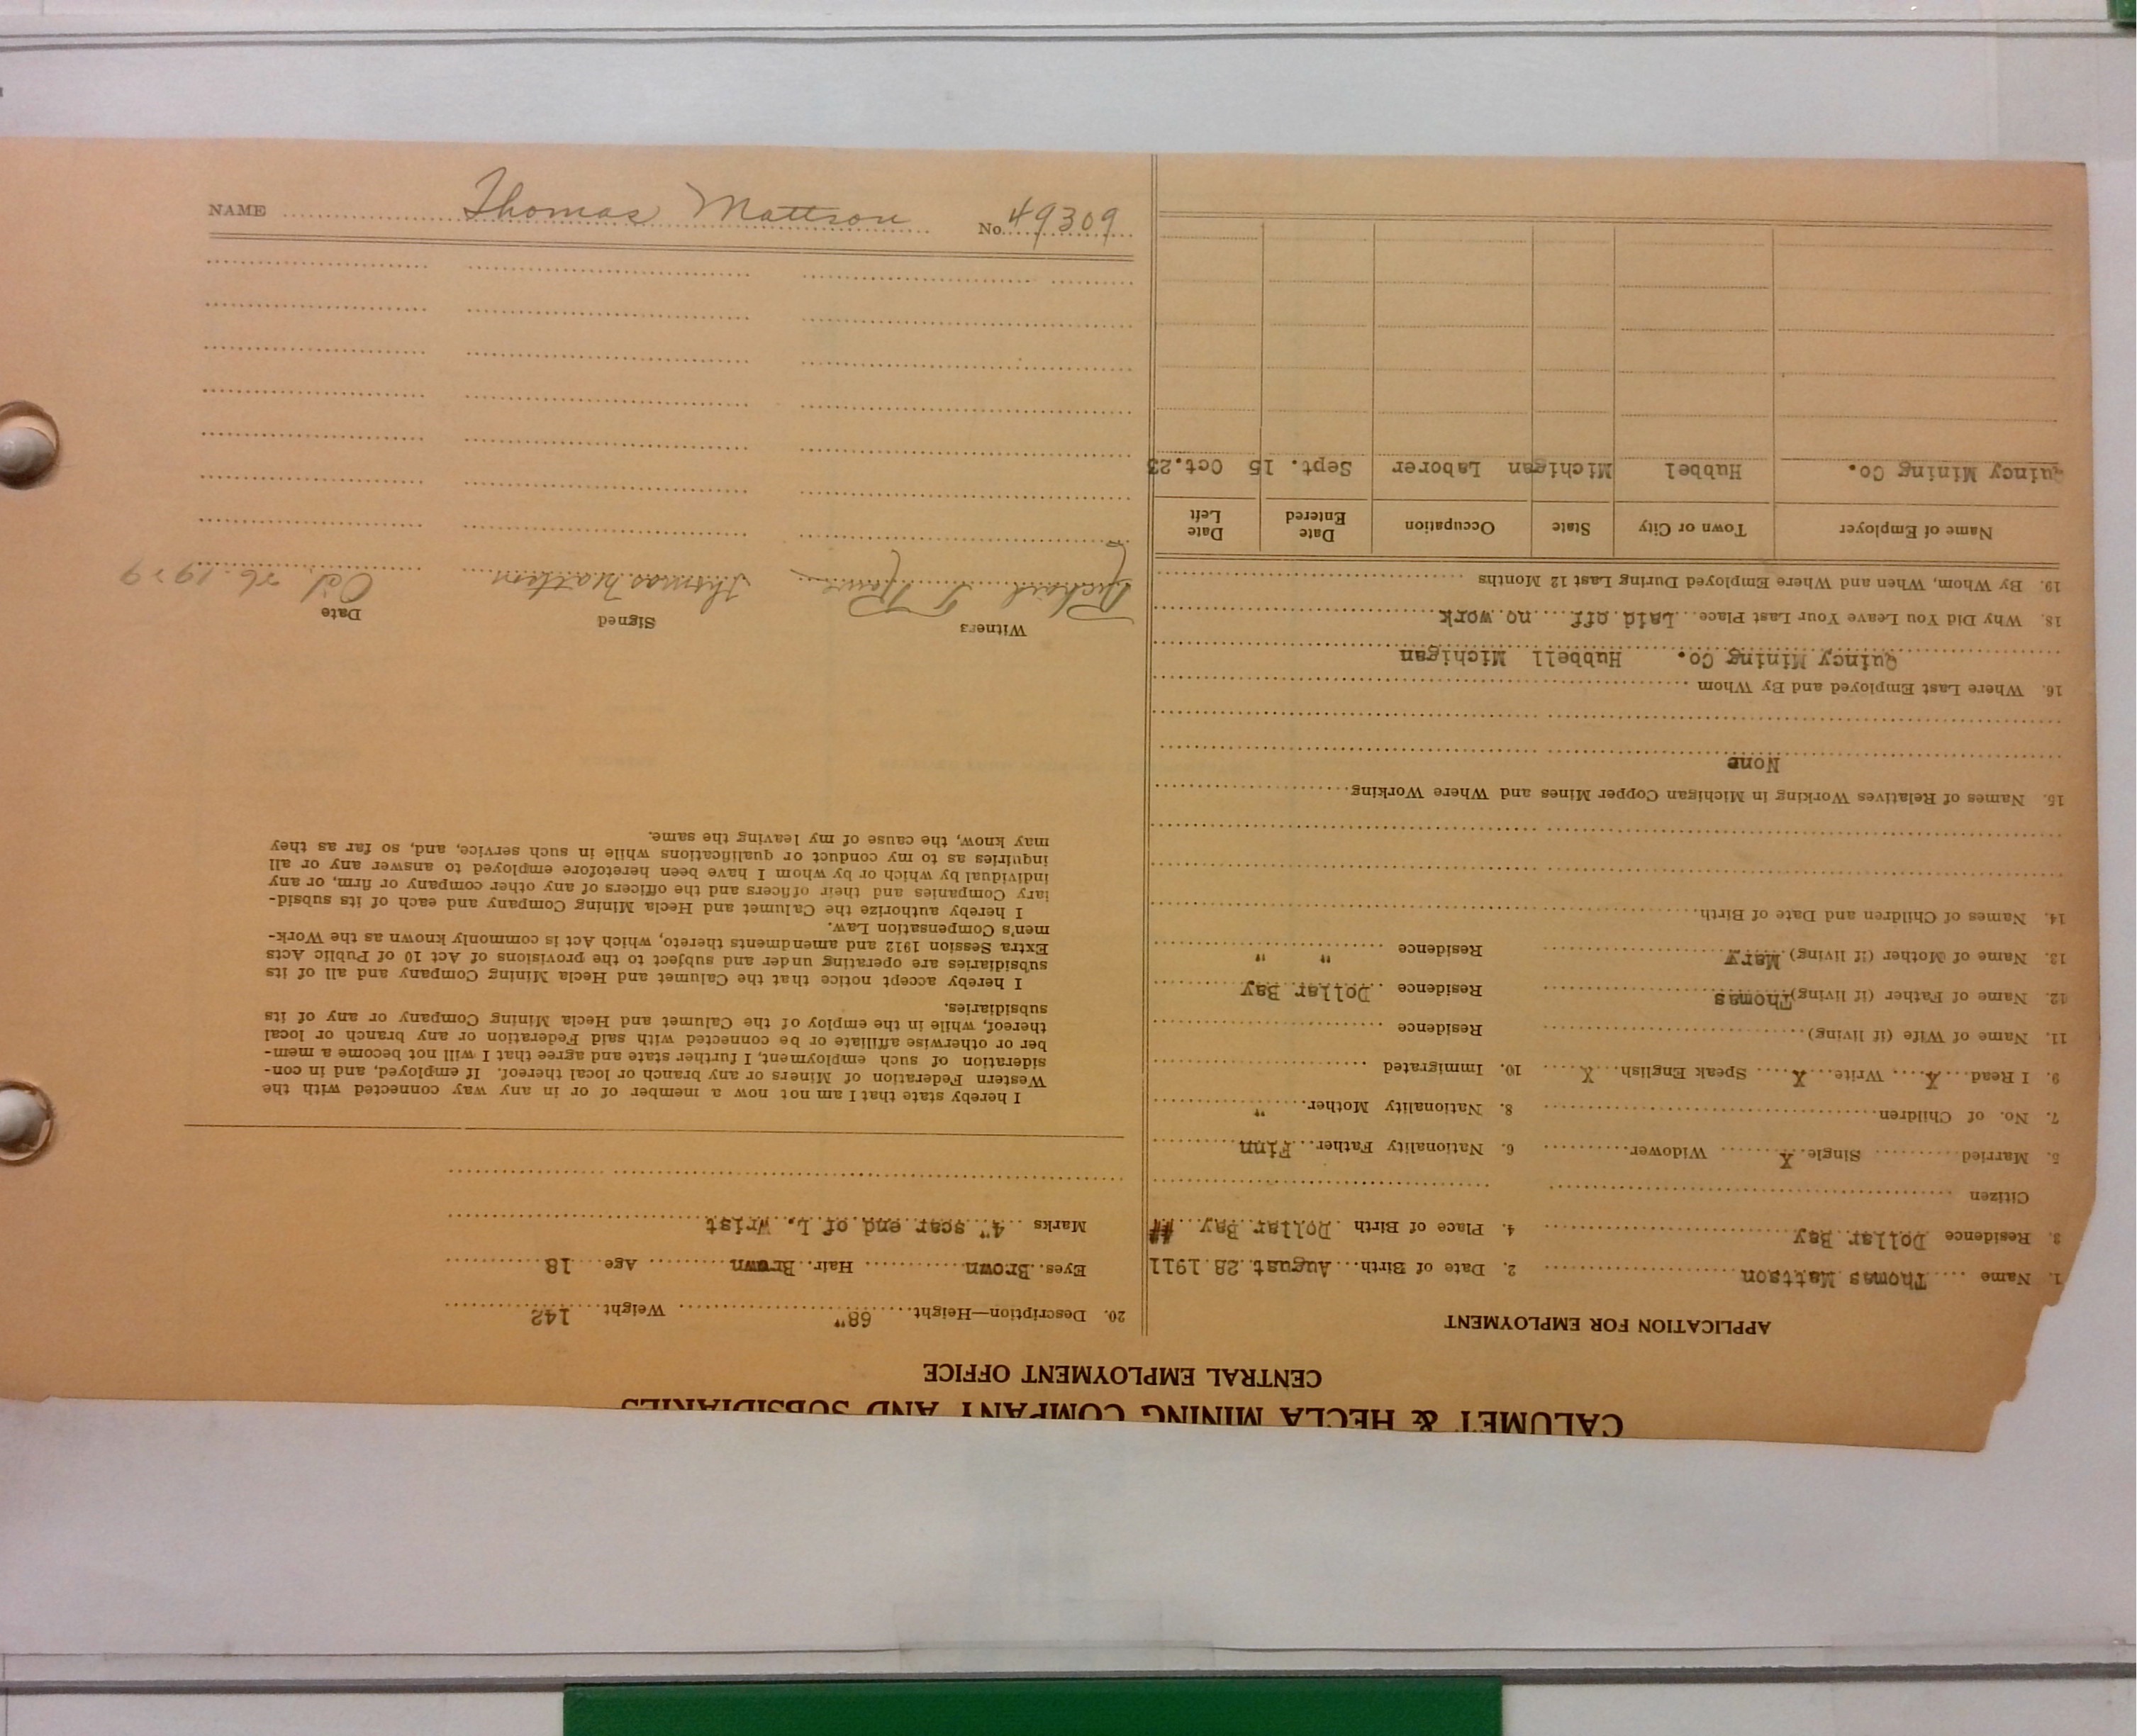 NAME Thomas Mattson No. 49309
CALUMET & HECLA MINING COMPANY AND SUBSIDIARIES
CENTRAL EMPLOYMENT OFFICE
APPLICATION FOR EMPLOYMENT
1. Name Thomas Mattson 2. Date of Birth August 28 1911
3. Residence Dollar Bay 4. Place of Birth Dollar Bay
Citizen
5. Married Single X Widower 6. Nationality Father Finn
7. No. of Children 8. Nationality Mother "
9. I Read X Write X Speak English X 10. Immigrated
11. Name of Wife (if living) Residence
12. Name of Father (if living) Thomas Residence Dollar Bay
13. Name of Mother (if living) Mary Residence " "
14. Names of Children and Date of Birth
15. Names of Relatives Working in Michigan Copper Mines and Where Working
None
16. Where Last Employed and By Whom
Quincy Mining Co. Hubbell Michigan
18. Why Did You Leave Your Last Place Laid off no work
19. By Whom, When and Where Employed During Last 12 Months
Name of Employer Town or City State Occupation Date Entered Date Left
Quincy Mining Co. Hubbel Michigan Laborer Sept. 15 Oct.23
20. Description—Height 68" Weight 142
Eyes Brown Hair Brown Age 18
Marks 4" scar end of L. Wrist
I hereby state that I am not now a member of or in any way connected with the
Western Federation of Miners or any branch or local thereof. If employed, and in con-
sideration of such employment, I further state and agree that I will not become a mem-
ber or otherwise affiliate or be connected with said Federation or any branch or local
thereof, while in the employ of the Calumet and Hecla Mining Company or any of its
subsidiaries.
I hereby accept notice that the Calumet and Hecla Mining Company and all of its
subsidiaries are operating under and subject to the provisions of Act 10 of Public Acts
Extra Session 1912 and amendments thereto, which Act is commonly known as the Work-
men's Compensation Law.
I hereby authorize the Calumet and Hecla Mining Company and each of its subsid-
iary Companies and their officers and the officers of any other company or firm, or any
individual by which or by whom I have been heretofore employed to answer any or all
inquiries as to my conduct or qualifications while in such service, and, so far as they
may know, the cause of my leaving the same.
Witness Signed Date
Richard T. Rowe Thomas Mattson Oct. 26. 1929